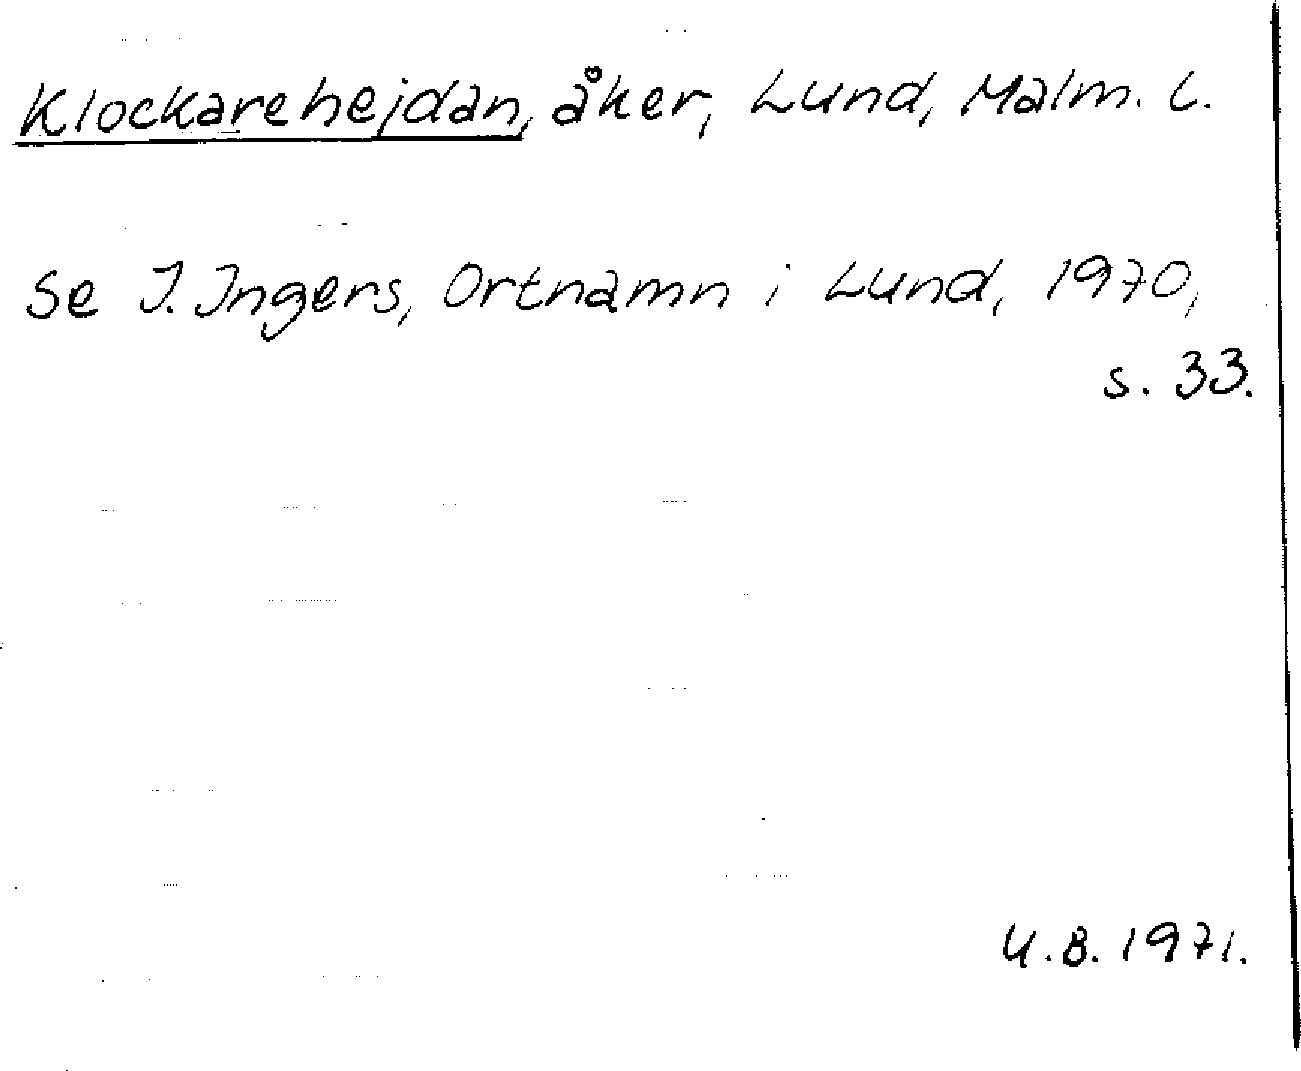 Klockarehejdan, åker, Lund, Malm. L.
Se I. Ingers, Ortnamn i Lund, 1970,
s. 33.
U.B. 1971.